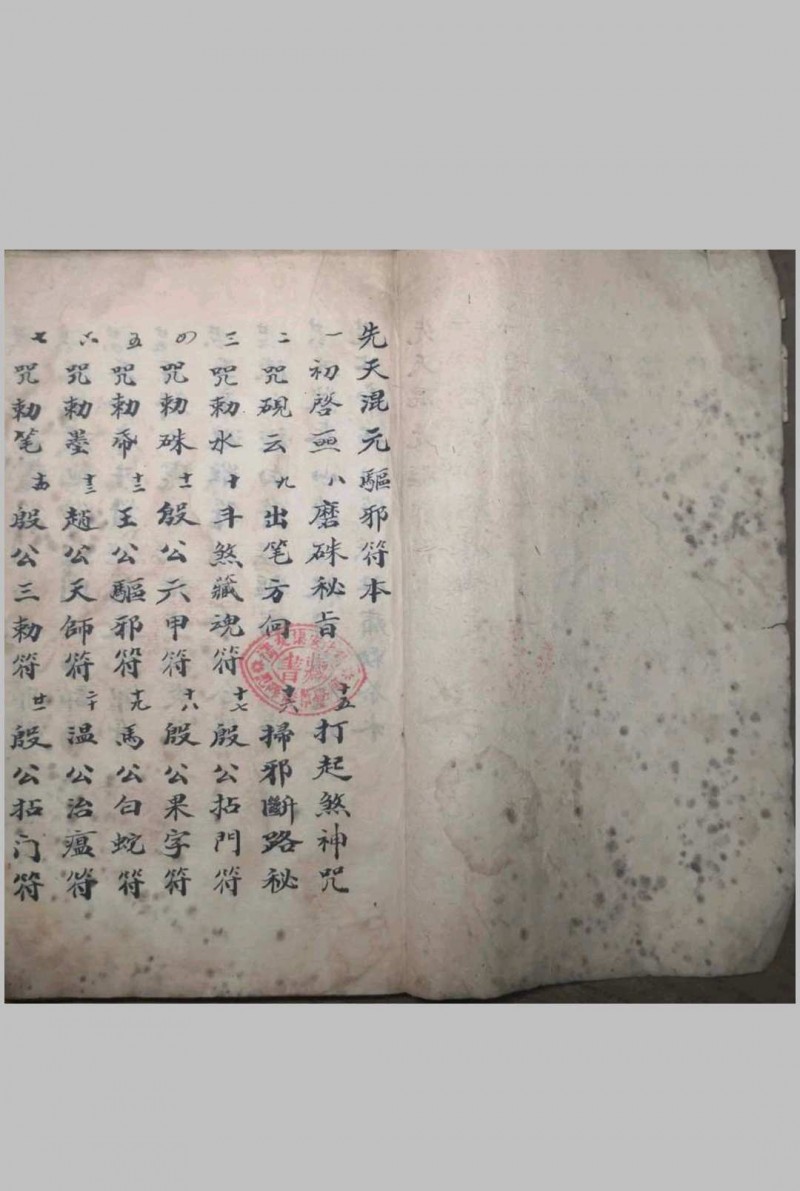 先天混元驅邪符本
一 初啓 八 磨硃秘旨 十五 打起煞神咒
二 咒硯云 九 出笔方向 十六 掃邪斷路秘
三 咒勅水 十 斗煞藏魂符 十七 殷公拈門符
四 咒勅硃 十一 殷公六甲符 十八 殷公果字符
五 咒勅帋 十二 王公驅邪符 十九 馬公白蛇符
六 咒勅墨 十三 趙公天師符 二十 温公治瘟符
七 咒勅笔 十四 殷公三勅符 廿一 殷公拓门符
藏書